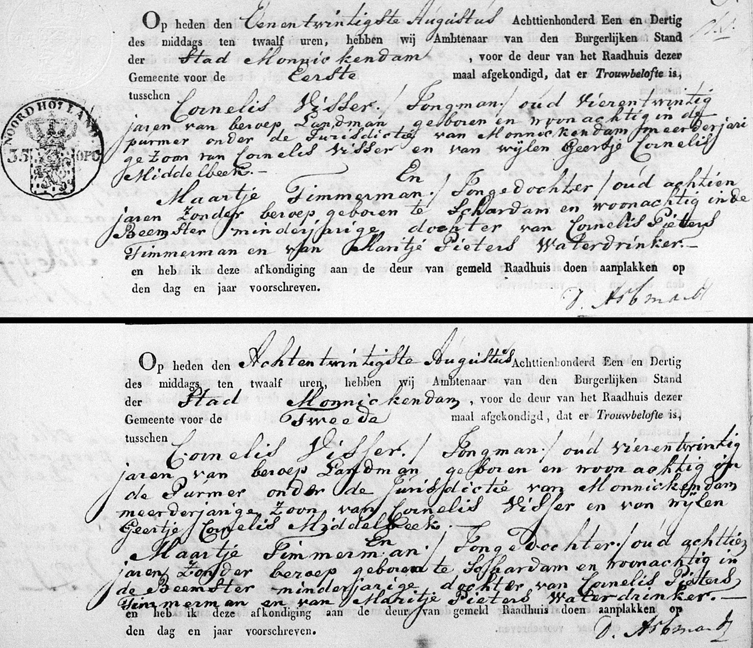 Op heden den Eenentwintigste Augustus Achttienhonderd Een en Dertig
des middags ten twaalf uren, hebben wij Ambtenaar van den Burgerlijken Stand
der Stad Monnickendam, voor de deur van het Raadhuis dezer
Gemeente voor de Eerste maal afgekondigd, dat er Trouwbelofte is,
tusschen
Cornelis Visser./ Jongman/ oud vierentwintig
jaren van beroep Landman geboren en woonachtig in de
purmer onder de Jurisdictie van Monnickendam meerderjari
ge zoon van Cornelis Visser en van wijlen Geertje Cornelis
Middelbeek.-
En
Maartje Timmerman./ Jongedochter/ oud achtien
jaren zonder beroep geboren te Schardam en woonachtig in de
Beemster minderjarige dochter van Cornelis Pieters
Timmerman en van Maritje Pieters Waterdrinker.-
en heb ik deze afkondiging aan de deur van gemeld Raadhuis doen aanplakken op
den dag en jaar voorschreven.
NOORD HOLLAND
35
OPC
Op heden den Achtentwintigste Augustus Achttienhonderd Een en Dertig
des middags ten twaalf uren, hebben wij Ambtenaar van den Burgerlijken Stand
der Stad Monnickendam, voor de deur van het Raadhuis dezer
Gemeente voor de Tweede maal afgekondigd, dat er Trouwbelofte is,
tusschen
Cornelis Visser./ Jongman/ oud vierentwintig
jaren van beroep Landman geboren en woonachtig in
de Purmer onder de Jurisdictie van Monnickendam
meerderjarige zoon van Cornelis Visser en van wijlen
Geertje Cornelis Middelbeek.
En
Maartje Timmerman./ Jongedochter./ oud achttien
jaren zonder beroep geboren te Schardam en woonachtig in
de Beemster minderjarige dochter van Cornelis Pieters
Timmerman en van Maritje Pieters Waterdrinker.-
en heb ik deze afkondiging aan de deur van gemeld Raadhuis doen aanplakken op
den dag en jaar voorschreven.